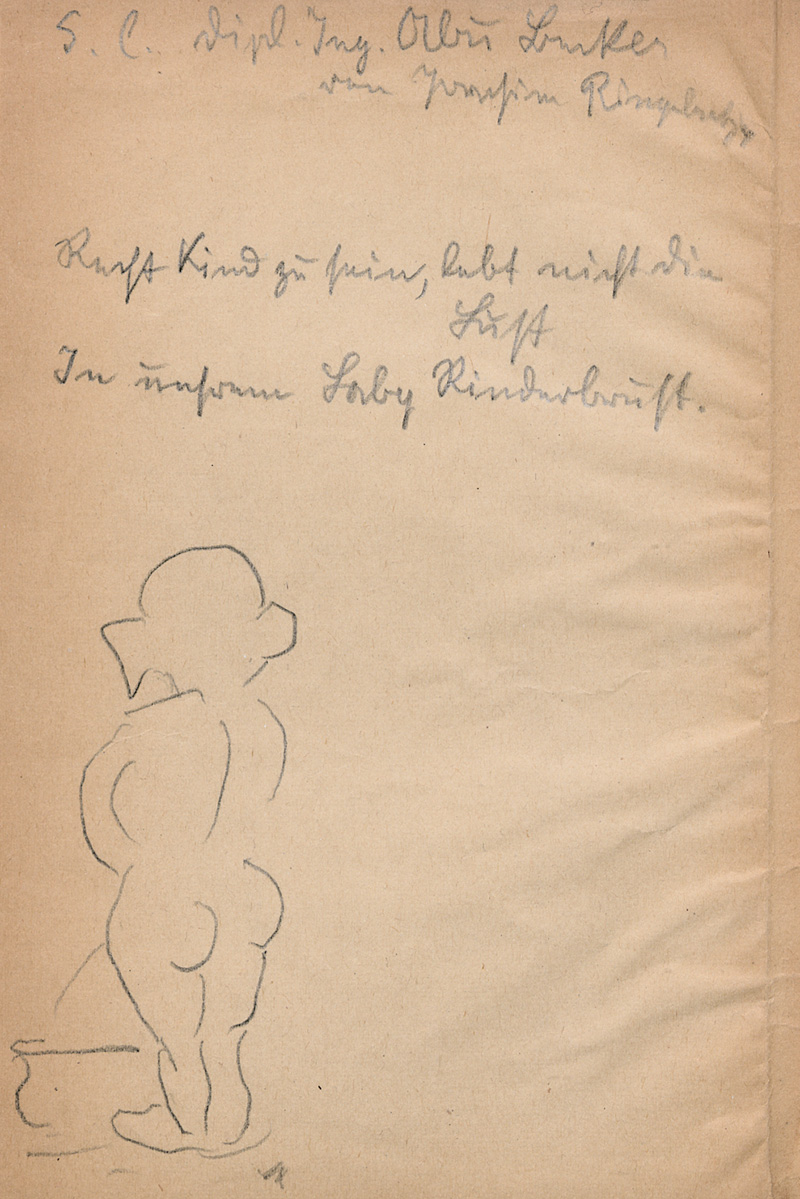 S. C. Dipl. Ing. Abu Becker
von Joachim Ringelnatz
Recht Kind zu sein, lebt nicht die
Lust
In unsrem Baby Kinderbrust.